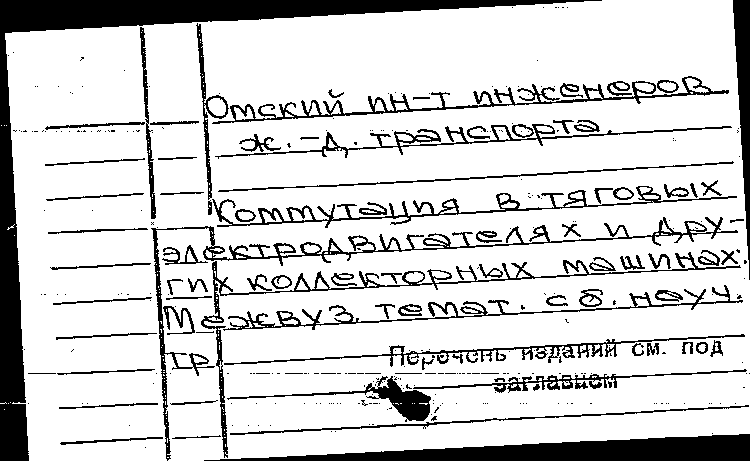 Омский ин-т инженеров
ж.-д. транспорта.
Коммутация в тяговых
электродвигателях и дру-
гих коллекторных машинах:
Межвуз. темат. сб. науч.
тр
Перечень изданий см. под
заглавием